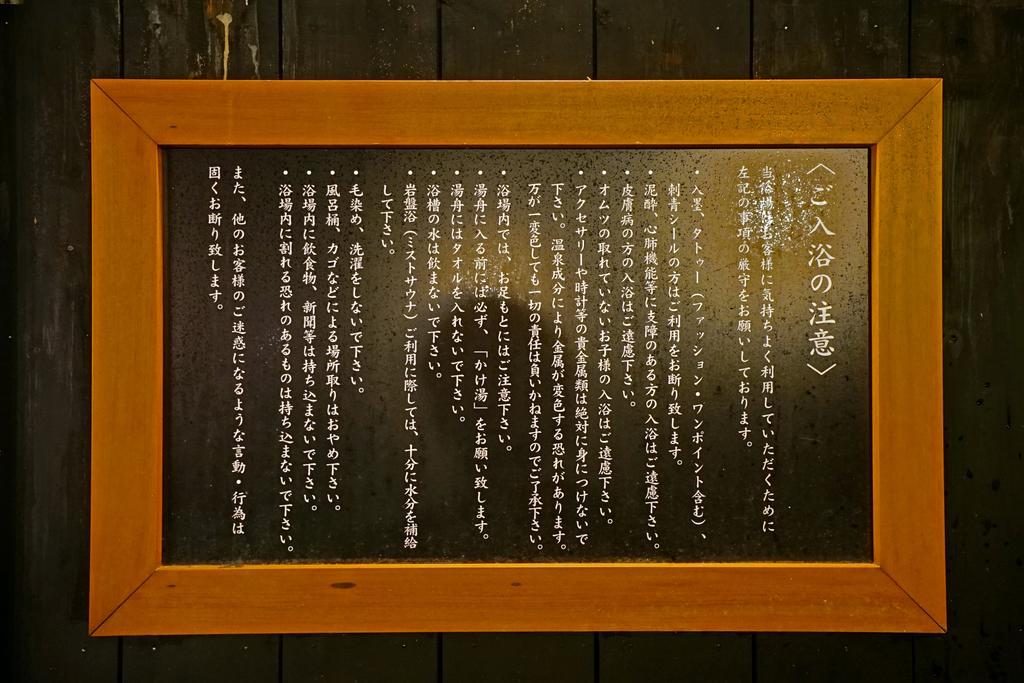 〈ご入浴の注意〉
当浴場はお客様に気持ちよく利用していただくために
左記の事項の厳守をお願いしております。
・入墨、タトゥー（ファッション・ワンポイント含む）、
刺青シールの方はご利用をお断り致します。
・泥酔、心肺機能等に支障のある方の入浴はご遠慮下さい。
・皮膚病の方の入浴はご遠慮下さい。
・オムツの取れていないお子様の入浴はご遠慮下さい。
・アクセサリーや時計等の貴金属類は絶対に身につけないで
下さい。温泉成分により金属が変色する恐れがあります。
万が一変色しても一切の責任は負いかねますのでご了承下さい。
・浴場内では、お足もとにはご注意下さい。
・湯舟に入る前には必ず、「かけ湯」をお願い致します。
・湯舟にはタオルを入れないで下さい。
・浴槽の水は飲まないで下さい。
・岩盤浴（ミストサウナ）ご利用に際しては、十分に水分を補給
して下さい。
・毛染め、洗濯をしないで下さい。
・風呂桶、カゴなどによる場所取りはおやめ下さい。
・浴場内に飲食物、新聞等は持ち込まないで下さい。
・浴場内に割れる恐れのあるものは持ち込まないで下さい。
また、他のお客様のご迷惑になるような言動・行為は
固くお断り致します。